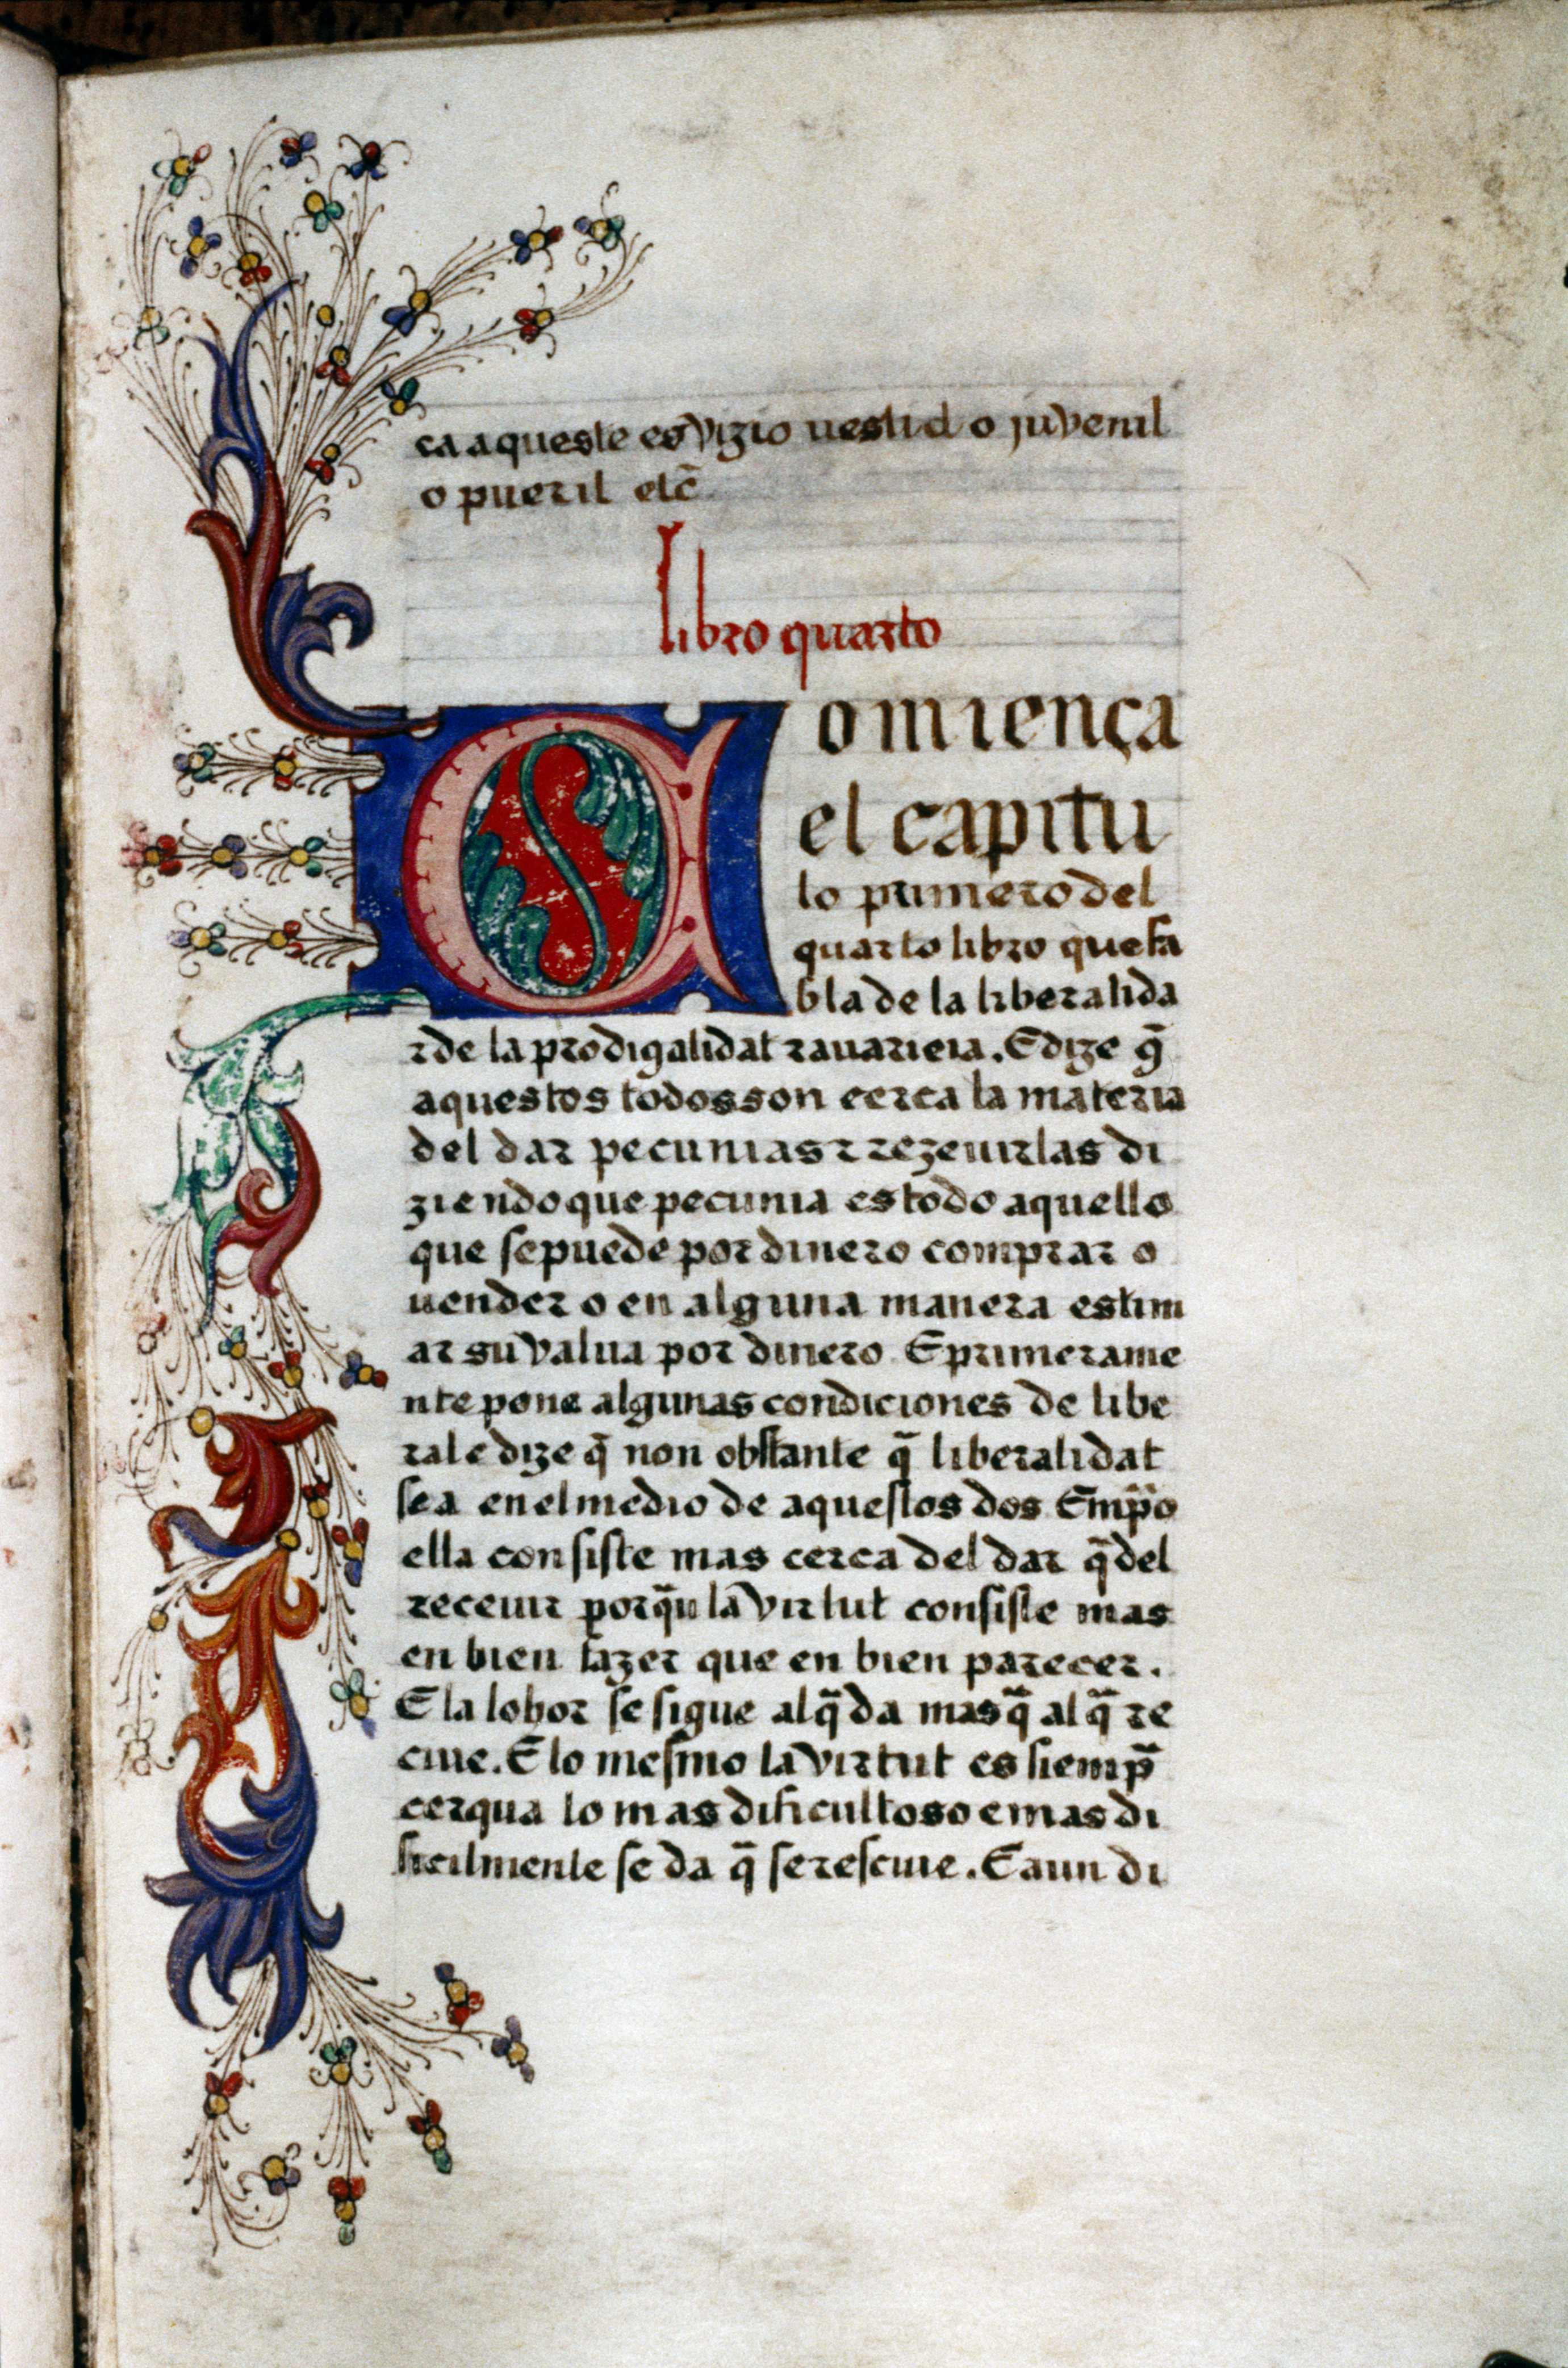 ca aqueste es vizio uestido juvenil
o pueril etc̄
libro quarto
Comiença
el capitu
lo primero del
quarto libro que fa
bla de la liberalida
z de la prodigalidat z auaricia. E dize q̄
aquestos todos son cerca la materia
del dar pecunias z rezeuirlas di
ziendo que pecunia es todo aquello
que se puede por dinero comprar o
uender o en alguna manera estim
ar su valua por dinero E primerame
nte pone algunas condiciones de libe
ral e dize q̄ non obstante q̄ liberalidat
sea en el medio de aquestos dos Emp̄o
ella consiste mas cerca del dar q̄ del
receuir porq̄u la virtut consiste mas
en bien fazer que en bien parecer.
E la lobor se sigue al q̄ da mas q̄ al q̄ re
ciue. E lo mesmo la virtut es siemp̄
cerqua lo mas dificultoso e mas di
ficilmente se da q̄ se resciue. E aun di